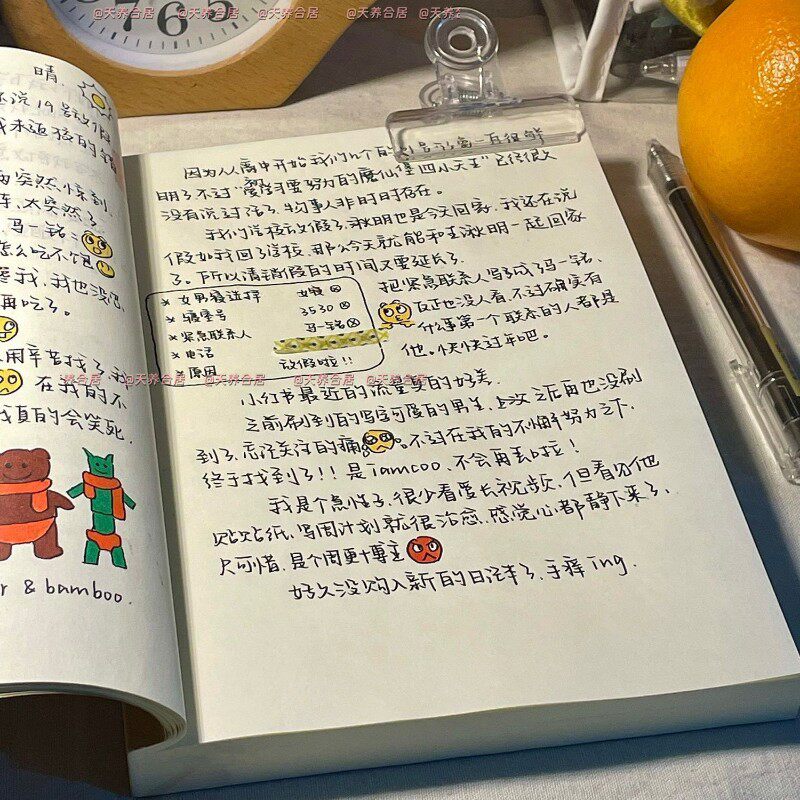 @天养合居 @天养合居 @天养合居 @天养合居 @天养
6
晴.
还说19号放假
突然惊到.
太突然了.
马一铭
怎么吃不饱
我.我也没
再吃了.
用辛苦找了
在我的不
我真的会笑死.
r & bamboo.
因为从高中开始我们
明了不过"要努力的魔仙堡四小天王"已经很久
没有说过话了.物事人非时时存在.
我们学校放假了.湫明也是今天回家.我还在说
假如我回了学校.那么今天就能和王湫明一起回家
了.所以清销假的时间又要延长了.
* 女男寝选择 女寝
* 寝室号 3530
* 紧急联系人 马一铭
* 电话
* 原因 放假啦!!
把紧急联系人写成了马一铭.
反正也没人看.不过确实有
什么事第一个联系的人都是
他.快快过年吧.
@天养合居 @天养合居 @天养合居 @天养合居 @天养合居
小红书最近的流量真的好差.
之前刷到的写完可爱的男生.上次之后再也没刷
到了.忘记关注的痛.不过在我的不懈努力之下.
终于找到了!!是iamcoo.不会再丢啦!
我是个急性子.很少看超长视频.但看见他
贴贴纸.写周计划就很治愈.感觉心都静下来了.
只可惜.是个周更博主
好久没购入新的日记本了.手痒ing.